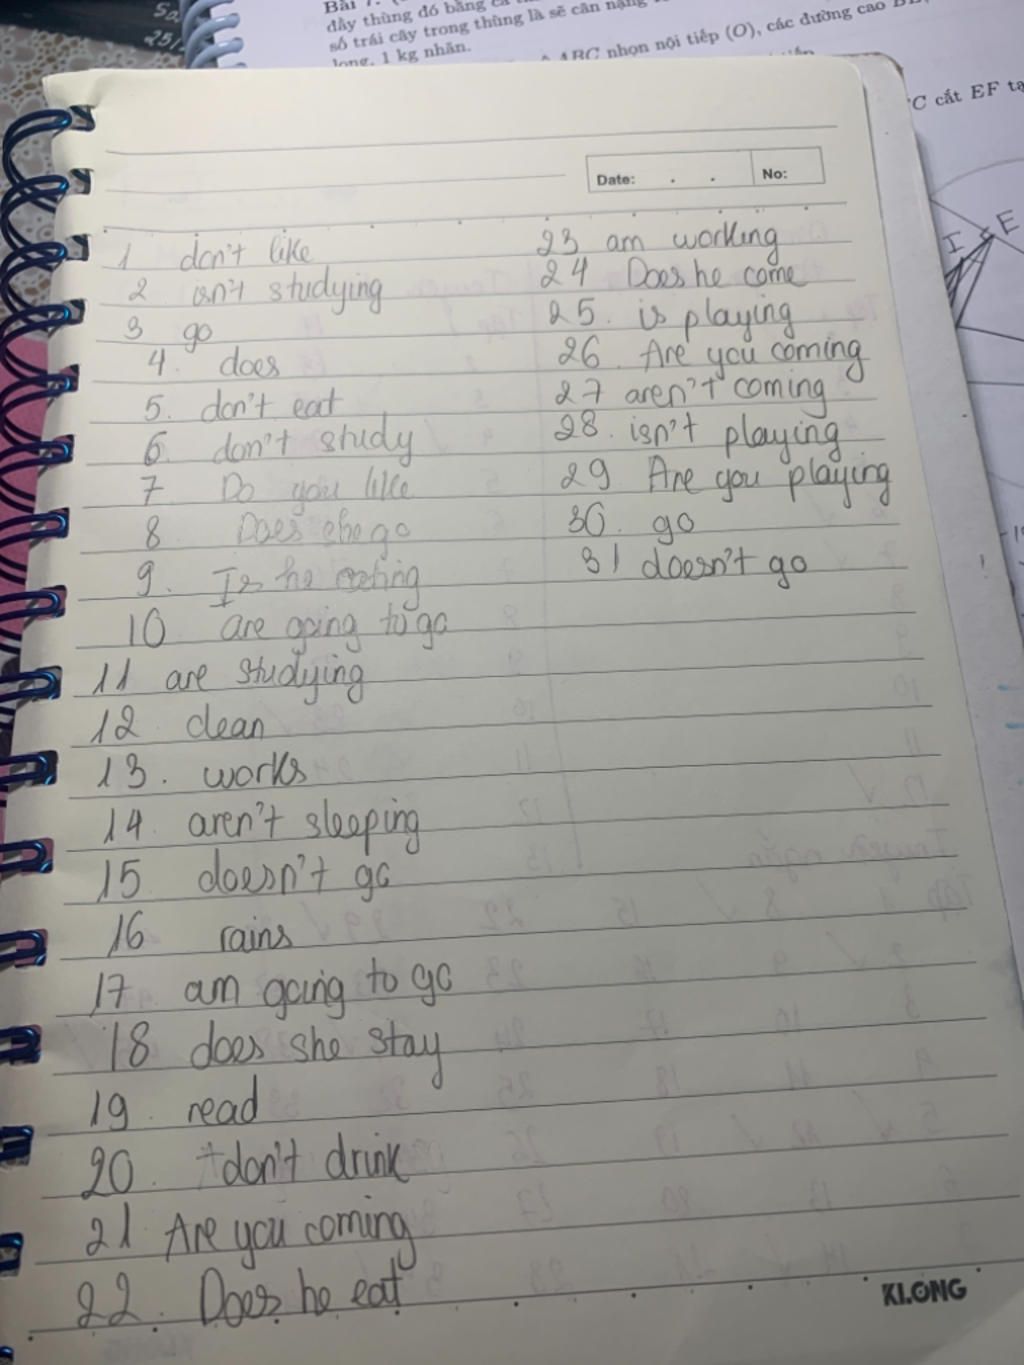 dây thùng đó bằng
số trái cây trong thùng là sẽ cân nặng
long, 1 kg nhãn.
ABC nhọn nội tiếp (O), các đường cao
C cắt EF tạ
I
E
Date: . . No:
1 don't like
2 isn't studying
3 go
4. does
5. don't eat
6. don't study
7 Do you like
8. Does she go
9. Is he eating
10 are going to go
11 are studying
12. clean
13. works
14. aren't sleeping
15 doesn't go
16 rains
17 am going to go
18 does she stay
19. read
20. don't drink
21. Are you coming
22. Does he eat
23 am working
24 Does he come
25. is playing
26. Are you coming
27 aren't coming
28. isn't playing
29 Are you playing
30. go
31 doesn't go
KLONG